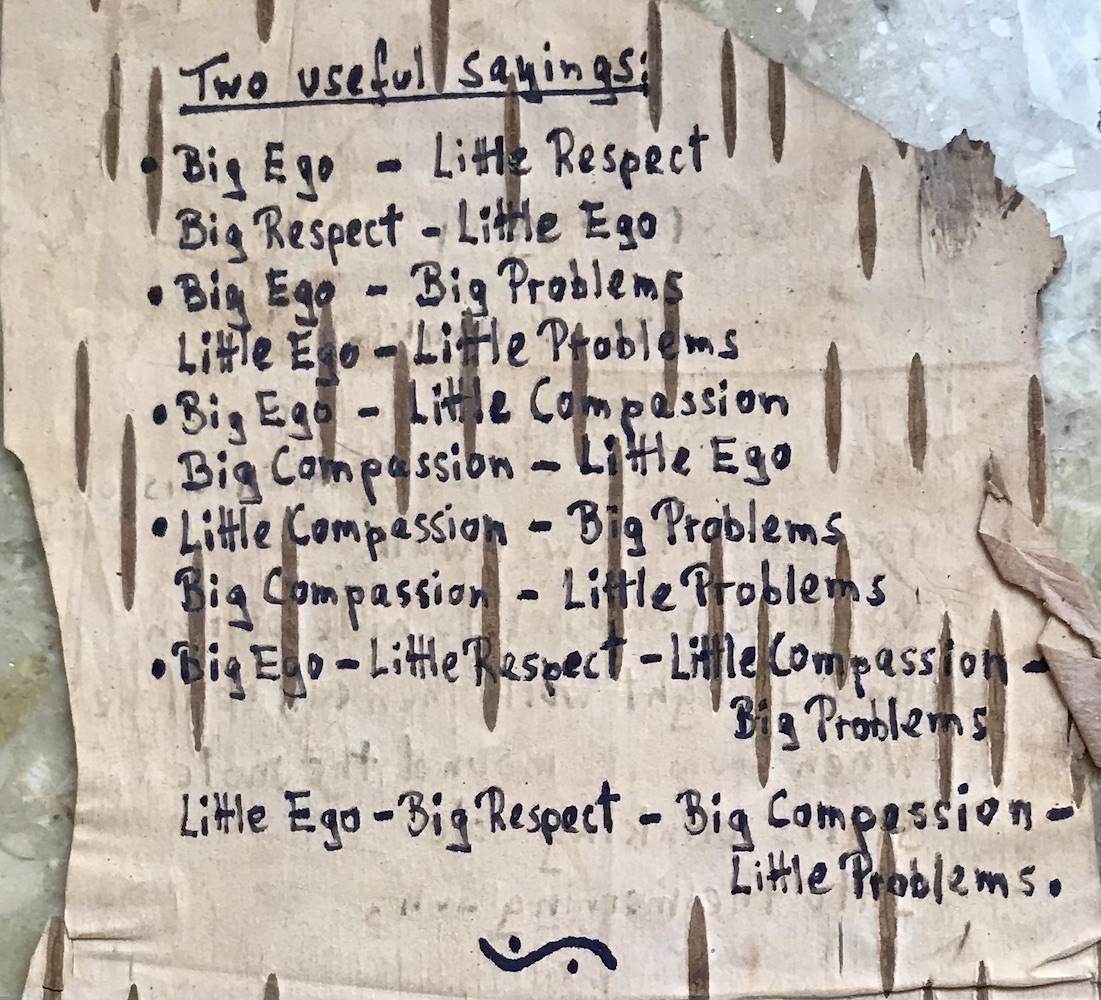 Two useful sayings:
• Big Ego - Little Respect
Big Respect - Little Ego
• Big Ego - Big Problems
Little Ego - Little Problems
• Big Ego - Little Compassion
Big Compassion - Little Ego
• Little Compassion - Big Problems
Big Compassion - Little Problems
• Big Ego - Little Respect - Little Compassion -
Big Problems
Little Ego - Big Respect - Big Compassion -
Little Problems.